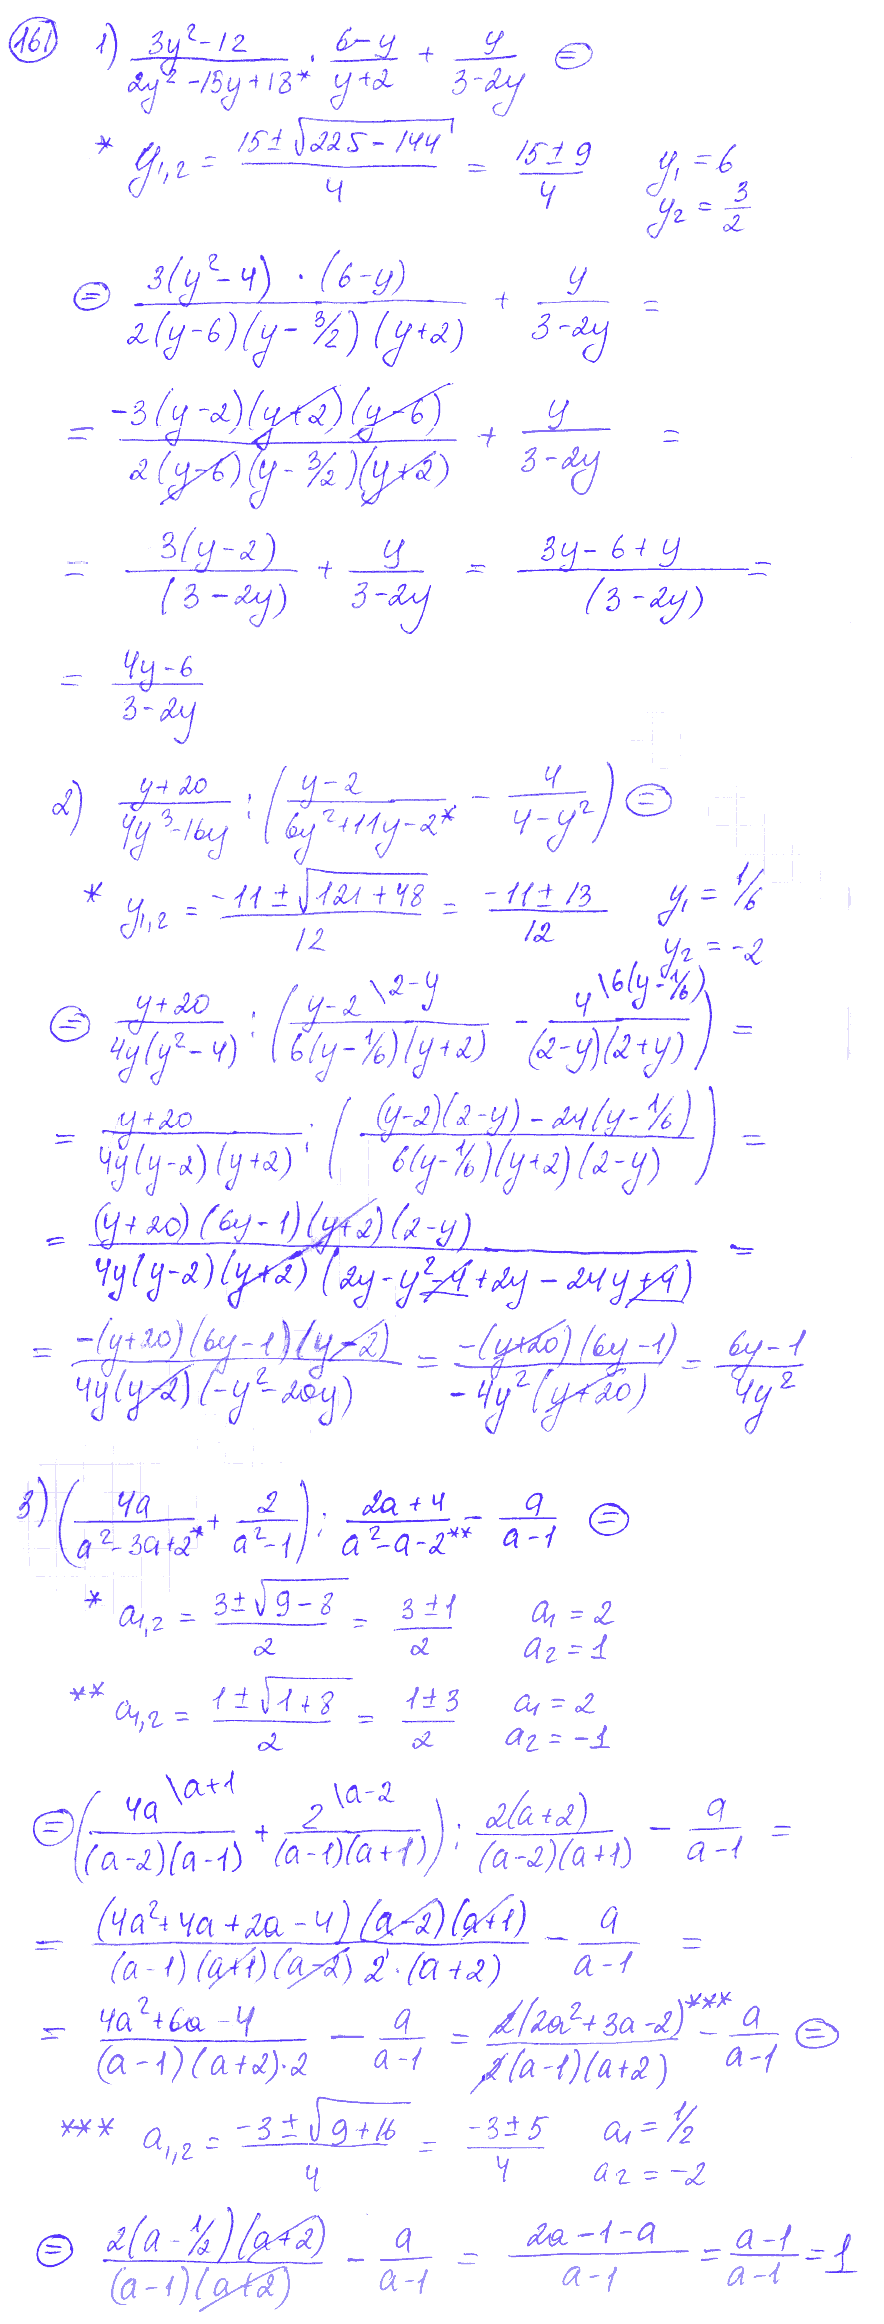 161 1) (3y²-12)/(2y²-15y+18*) · (6-y)/(y+2) + y/(3-2y) ⊜
* y₁,₂ = (15±√(225-144))/4 = (15±9)/4 y₁ = 6
y₂ = 3/2
⊜ (3(y²-4) · (6-y))/(2(y-6)(y-3/2)(y+2)) + y/(3-2y) =
= (-3(y-2)(y+2)(y-6))/(2(y-6)(y-3/2)(y+2)) + y/(3-2y) =
= (3(y-2))/((3-2y)) + y/(3-2y) = (3y-6+y)/((3-2y)) =
= (4y-6)/(3-2y)
2) (y+20)/(4y³-16y) : ((y-2)/(6y²+11y-2*) - 4/(4-y²)) ⊜
* y₁,₂ = (-11±√(121+48))/12 = (-11±13)/12 y₁ = 1/6
y₂ = -2
⊜ (y+20)/(4y(y²-4)) : ((y-2 \2-y)/(6(y-1/6)(y+2)) - (4 \6(y-1/6))/((2-y)(2+y))) =
= (y+20)/(4y(y-2)(y+2)) : (((y-2)(2-y)-24(y-1/6))/(6(y-1/6)(y+2)(2-y))) =
= ((y+20)(6y-1)(y+2)(2-y))/(4y(y-2)(y+2)(2y-y²-4+2y-24y+4)) =
= (-(y+20)(6y-1)(y-2))/(4y(y-2)(-y²-20y)) = (-(y+20)(6y-1))/(-4y²(y+20)) = (6y-1)/(4y²)
3) (4a/(a²-3a+2*) + 2/(a²-1)) : (2a+4)/(a²-a-2**) - a/(a-1) ⊜
* a₁,₂ = (3±√(9-8))/2 = (3±1)/2 a₁ = 2
a₂ = 1
** a₁,₂ = (1±√(1+8))/2 = (1±3)/2 a₁ = 2
a₂ = -1
⊜ ((4a \a+1)/((a-2)(a-1)) + (2 \a-2)/((a-1)(a+1))) : (2(a+2))/((a-2)(a+1)) - a/(a-1) =
= ((4a²+4a+2a-4)(a-2)(a+1))/((a-1)(a+1)(a-2) 2·(a+2)) - a/(a-1) =
= (4a²+6a-4)/((a-1)(a+2)·2) - a/(a-1) = (2(2a²+3a-2)***)/(2(a-1)(a+2)) - a/(a-1) ⊜
*** a₁,₂ = (-3±√(9+16))/4 = (-3±5)/4 a₁ = 1/2
a₂ = -2
⊜ (2(a-1/2)(a+2))/((a-1)(a+2)) - a/(a-1) = (2a-1-a)/(a-1) = (a-1)/(a-1) = 1